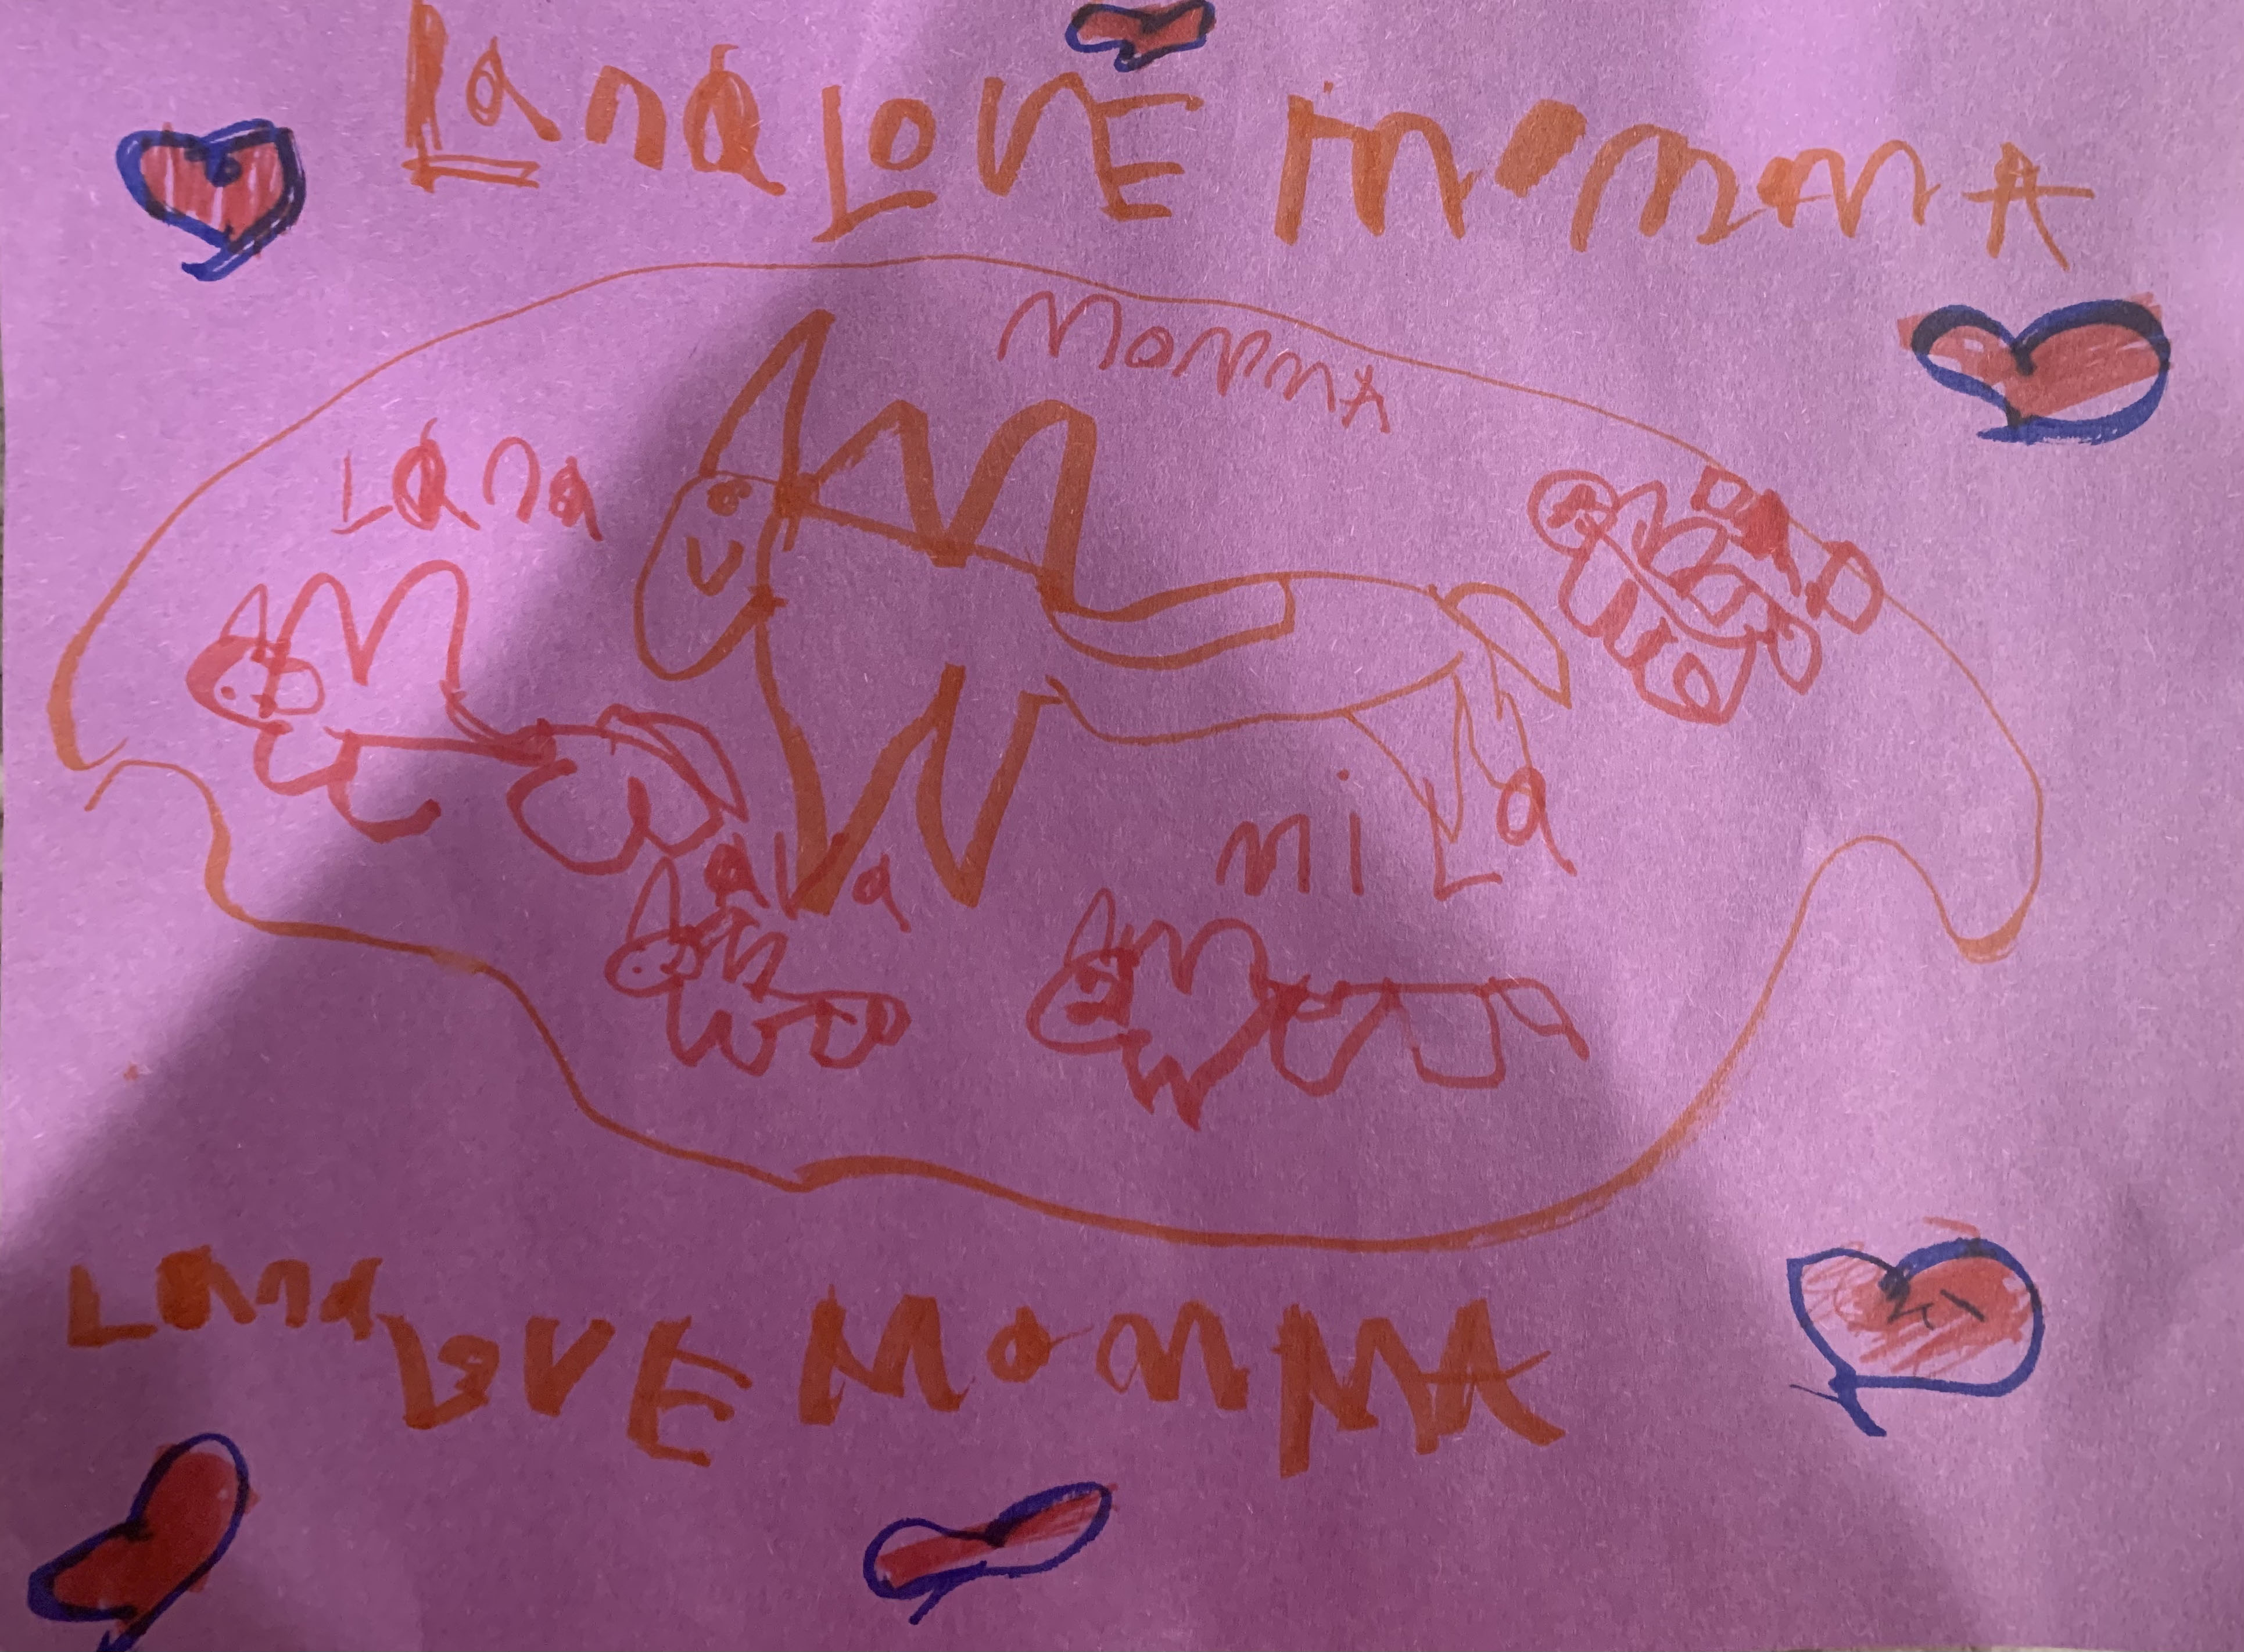 Lana LOVE mommA
MommA
Lana
miLa
aVa
Lana LOVE MommA